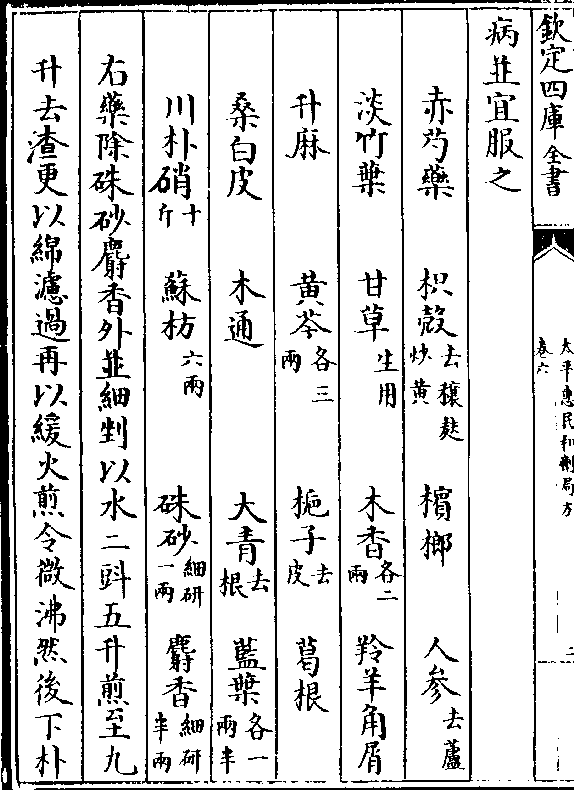 欽定四庫全書
太平惠民和劑局方
卷六
二
病並宜服之
赤芍藥 枳殼去穰麩炒黃 檳榔 人參去蘆
淡竹葉 甘草生用 木香各二兩 羚羊角屑
升麻 黃芩各三兩 梔子去皮 葛根
桑白皮 木通 大青去根 藍葉各一兩半
川朴硝十斤 蘇枋六兩 硃砂細研一兩 麝香細研半兩
右藥除硃砂麝香外並細剉以水二㪷五升煎至九
升去渣更以綿濾過再以緩火煎令微沸然後下朴